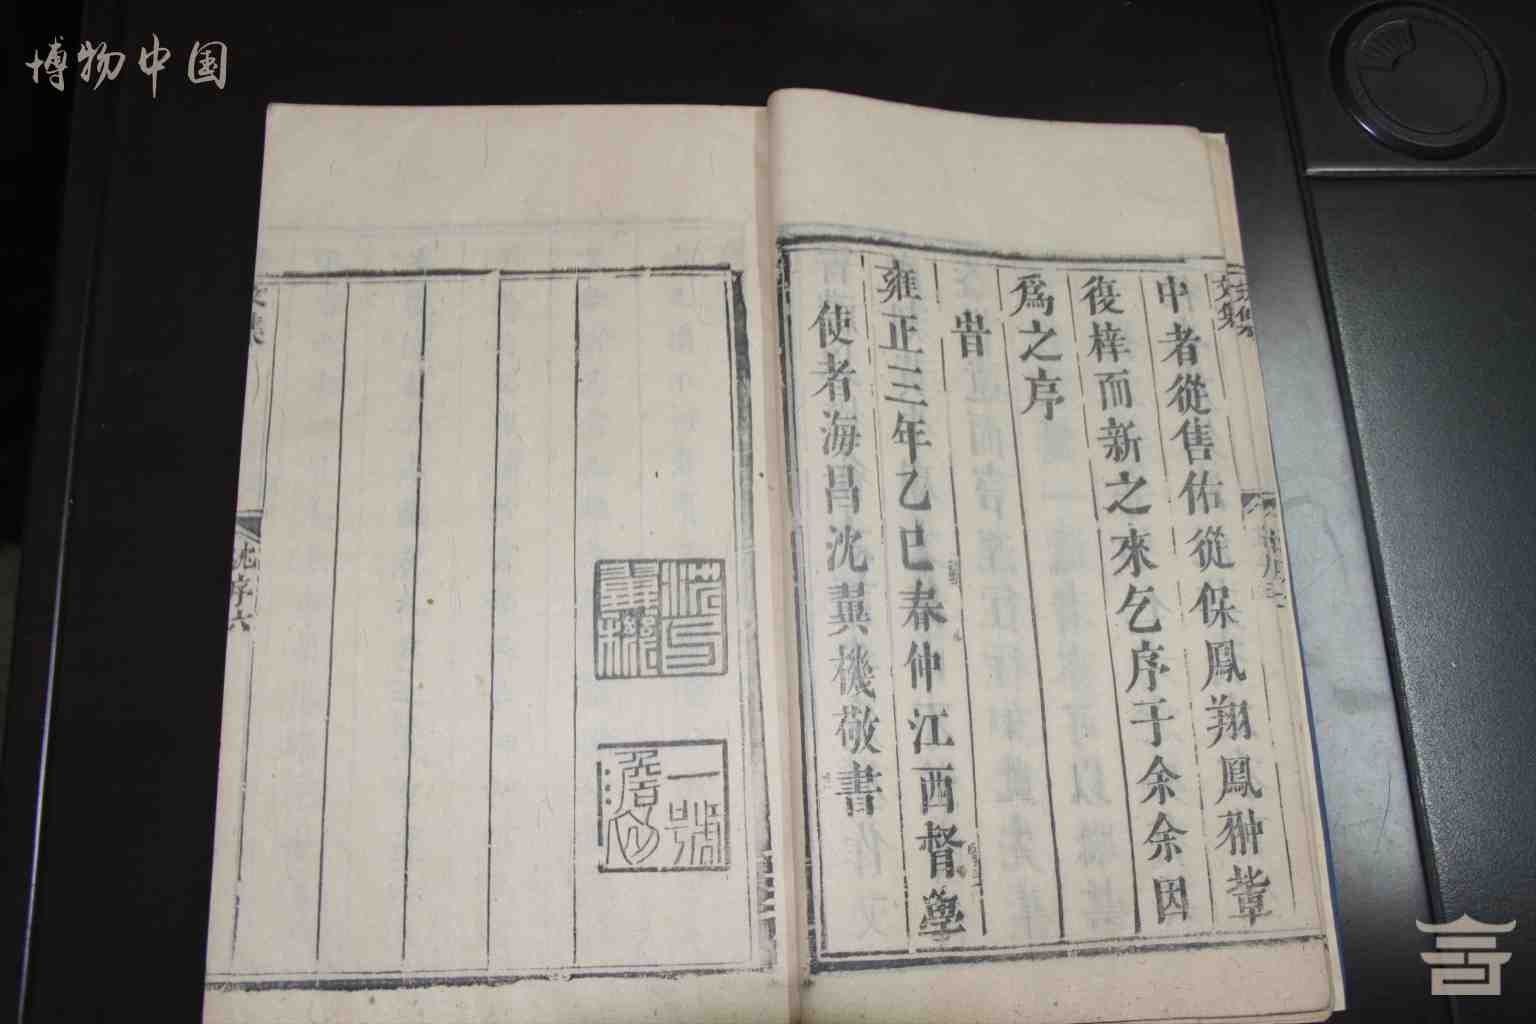 博物中国
中者從售佑從保鳳翔鳳翀輩
復梓而新之來乞序于余余因
爲之序
旹
雍正三年乙巳春仲江西督學
使者海昌沈翼機敬書
沈翼機印
一號澹初
文集
沈序六